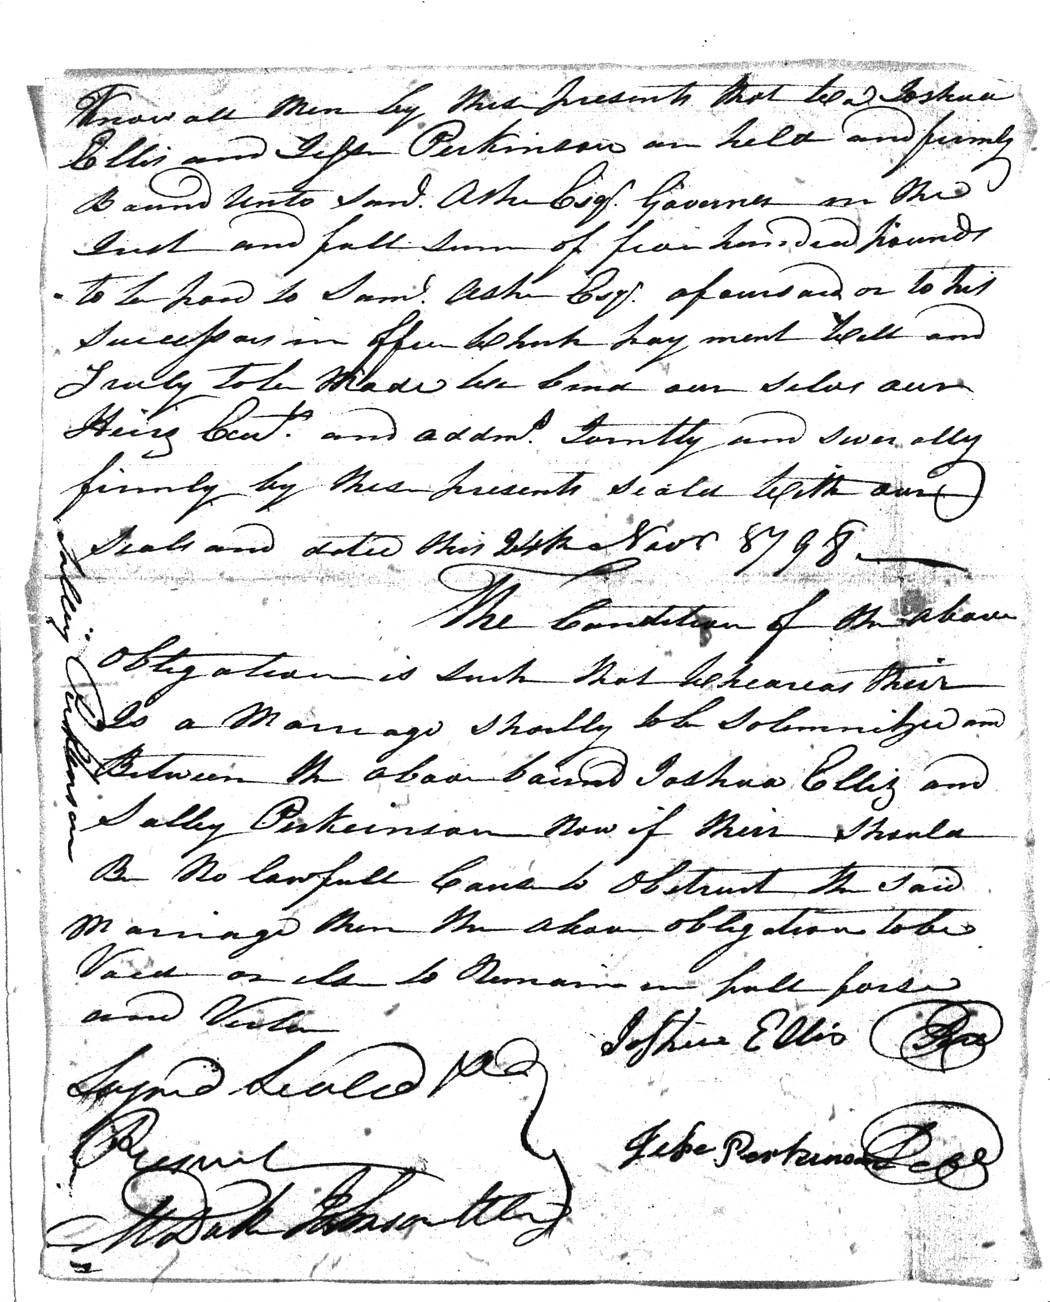 Know all Men by these presents that we Joshua
Ellis and Jesse Perkinson are held and firmly
Bound unto Saml. Ashe Esqr. Governer in the
Just and full sum of five hundred Pounds
to be paid to Saml. Ashe Esqr. aforesaid or to his
Successors in office which payment well and
Truly to be Made we bind our selves our
Heirs Exut. and addms. Jointly and severally
firmly by these presents seald with our
Seals and dated this 24th Novr 1798
The Condition of the above
Obligation is such that wheareas their
Is a Marriage shortly to be Solemnized
Between the above bound Joshua Ellis and
Sally Perkeinson Now if their should
Be No lawfull Cause to obstruct the said
Marriage then the above obligation to be
Void or else to Remain in full forse
and Virtue
Joshua Ellis
Signd Seald
Presnt
Jesse Perkinson Seal
Sally Perkinson